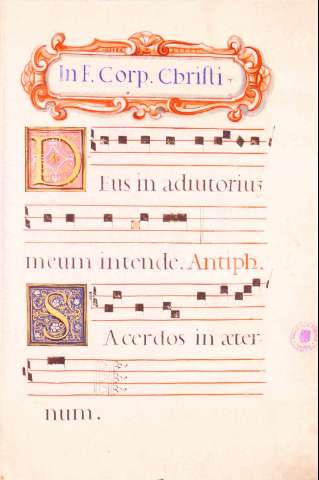 In F. Corp. Christi
Deus in adiutoriuʒ
meum intende. Antiph.
Sacerdos in æter-
num.